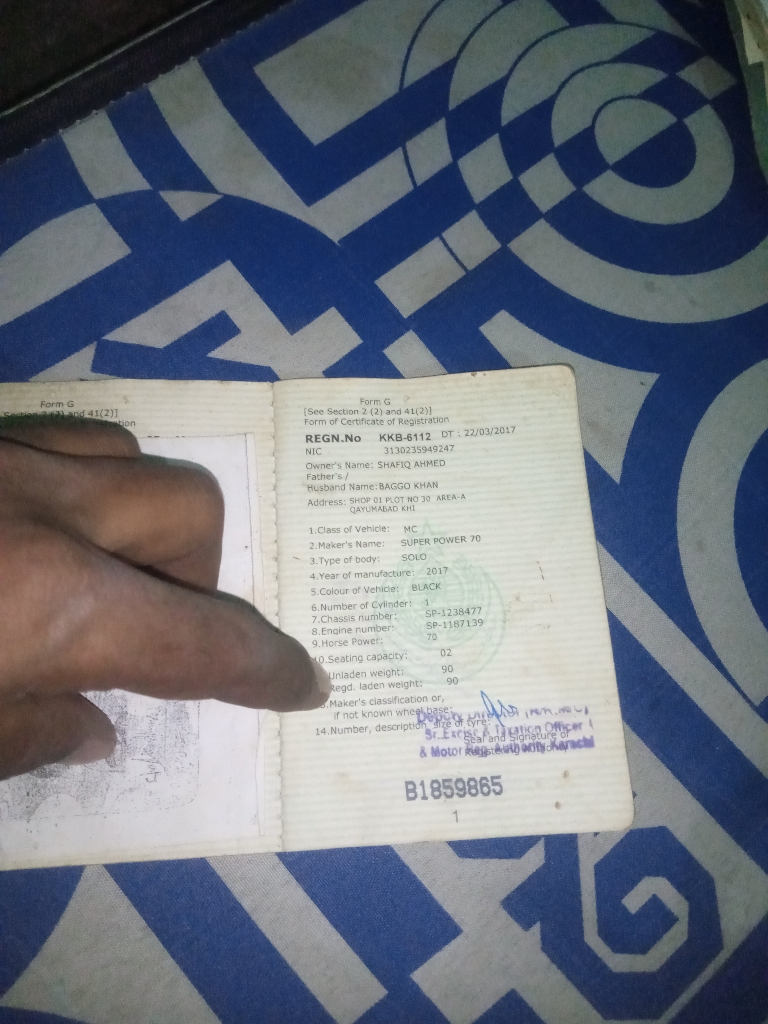 Form G
Section 2 (2) and 41(2)]
Form G
[See Section 2 (2) and 41(2)]
Form of Certificate of Registration
REGN.No KKB-6112 DT : 22/03/2017
NIC 3130235949247
Owner's Name: SHAFIQ AHMED
Father's /
Husband Name: BAGGO KHAN
Address: SHOP 01 PLOT NO 30 AREA-A
QAYUMABAD KHI
1.Class of Vehicle: MC
2.Maker's Name: SUPER POWER 70
3.Type of body: SOLO
4.Year of manufacture: 2017
5.Colour of Vehicle: BLACK
6.Number of Cylinder: 1
7.Chassis number: SP-1238477
8.Engine number: SP-1187139
9.Horse Power: 70
10.Seating capacity: 02
Unladen weight: 90
Regd. laden weight: 90
Maker's classification or,
if not known wheel base:
14.Number, description, size of tyre:
Deputy
Sr. Excise & Taxation Officer
Seal and Signature of
& Motor Reg. Authority Karachi
Registering Authority
B1859865
1